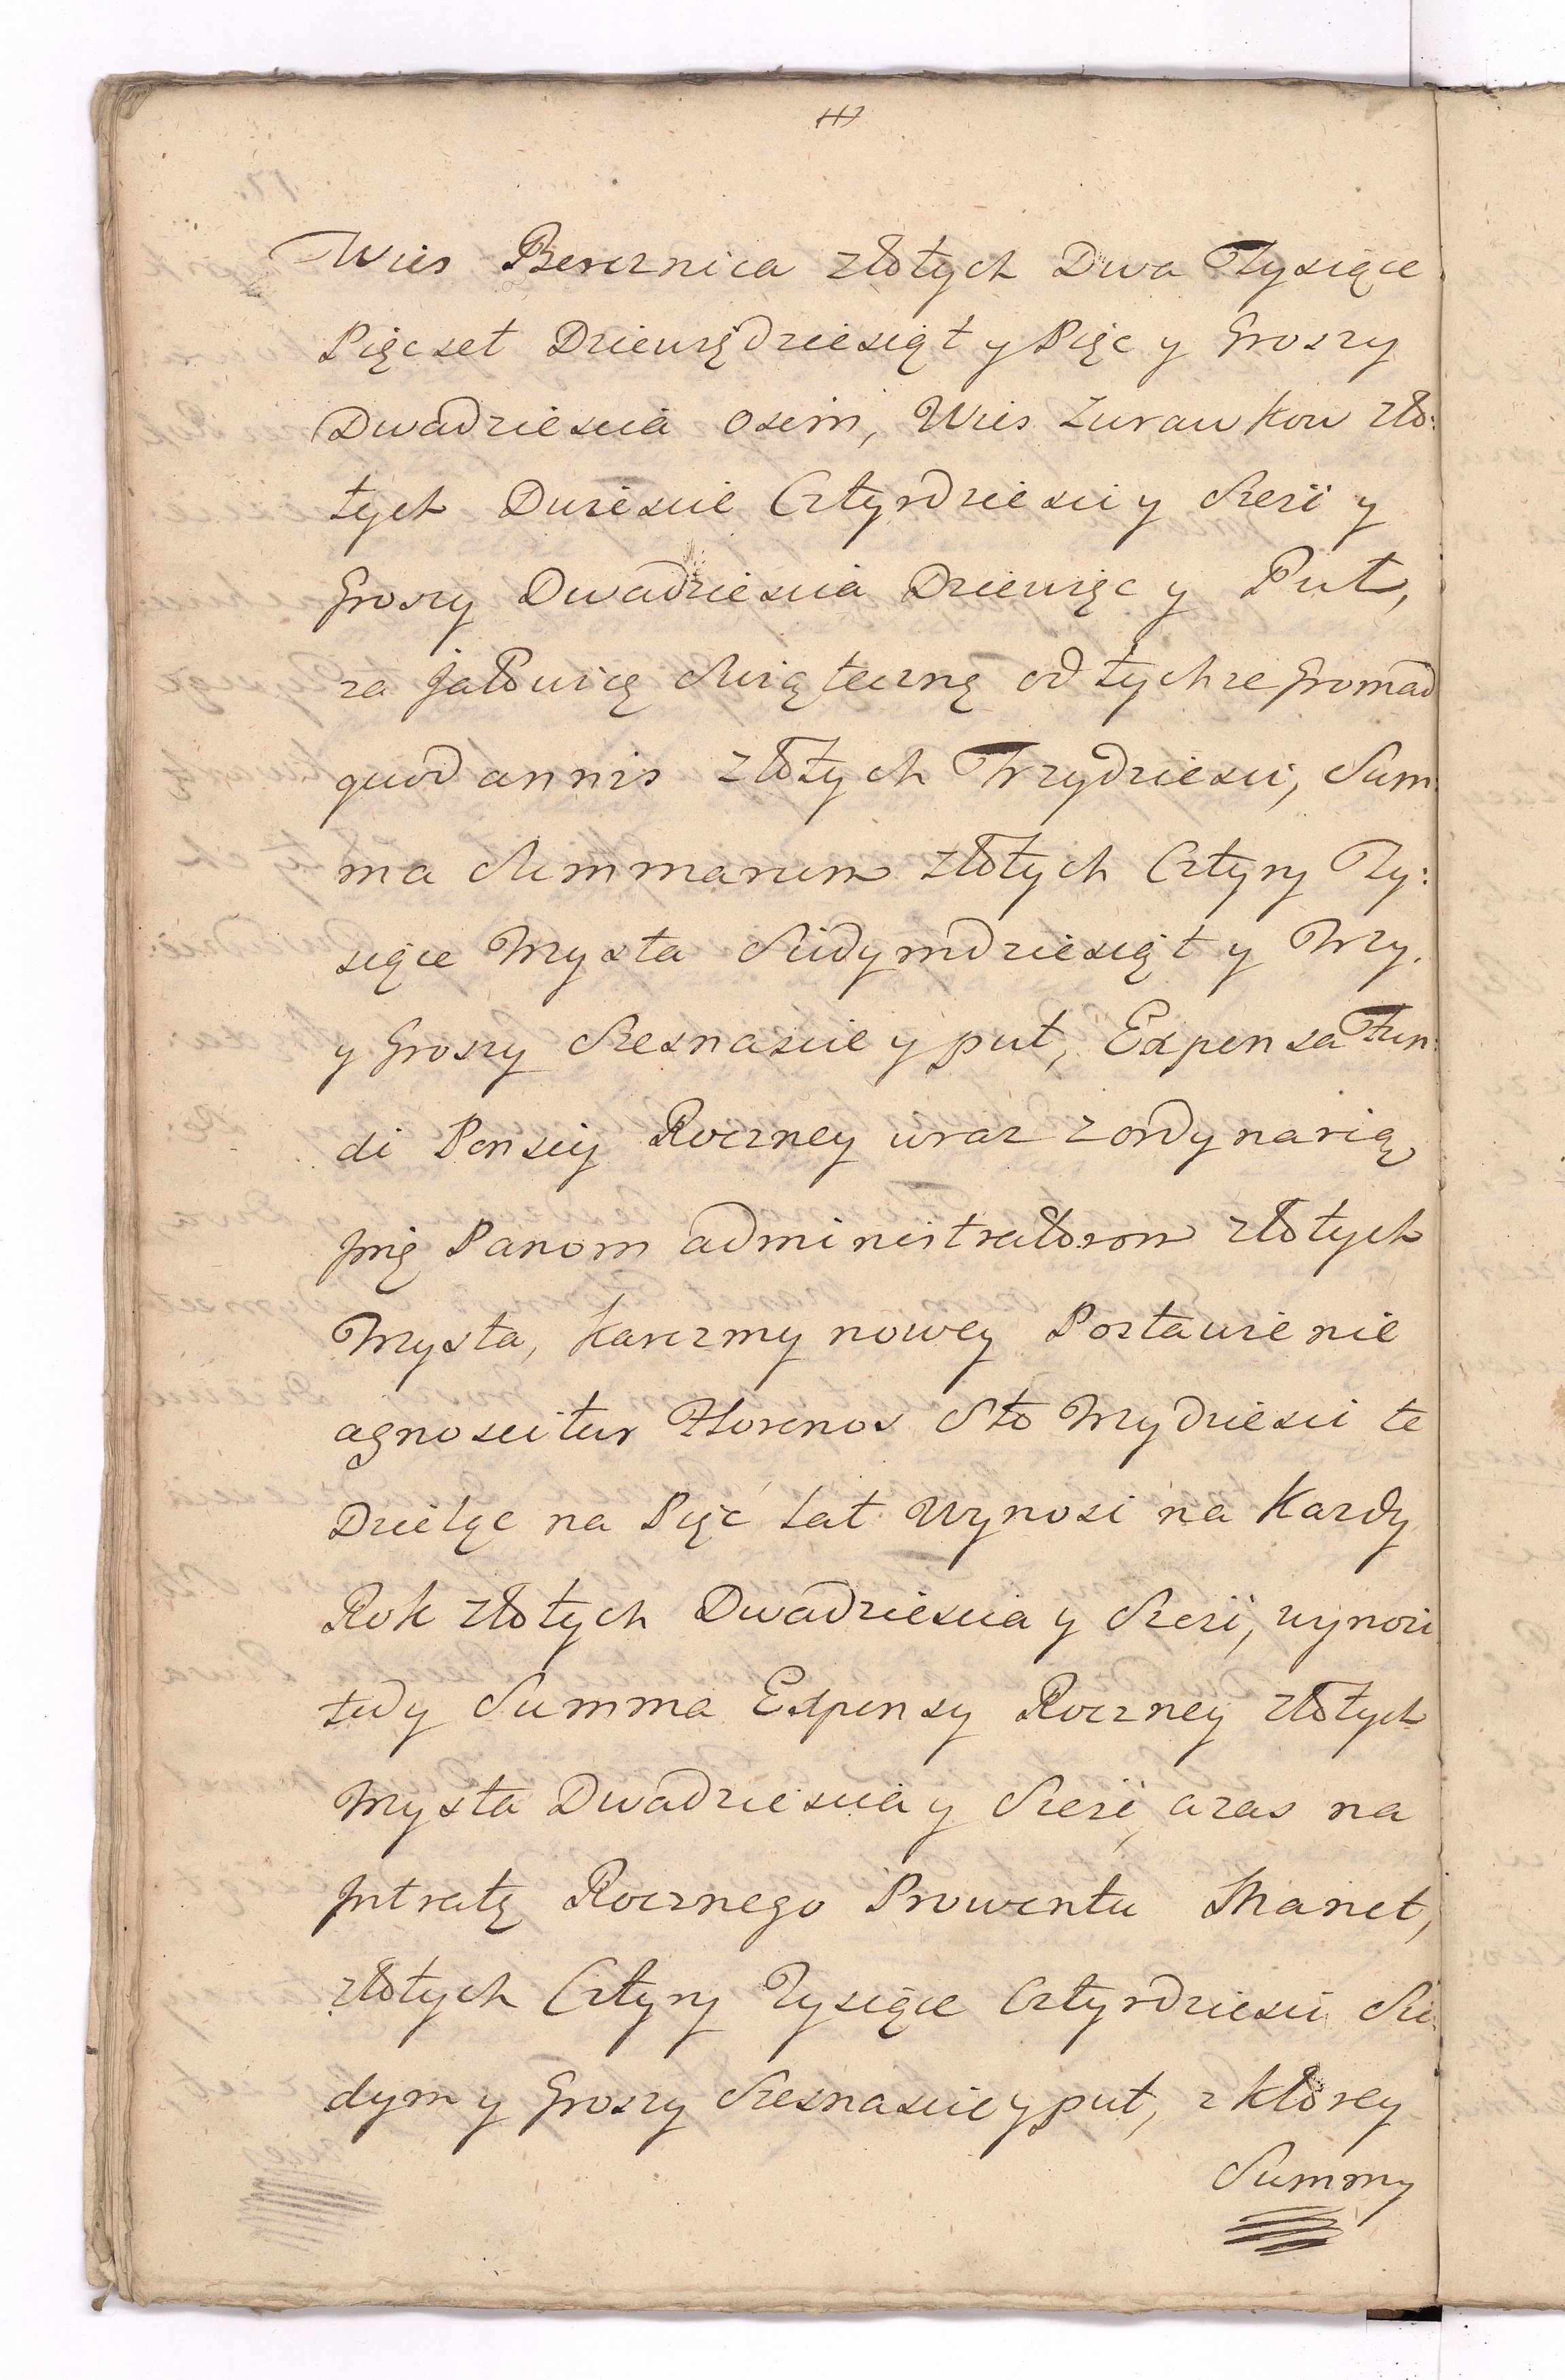 Wies Bereznica złotych Dwa Tysiące
Pięcset Dziewiędziesiąt y Pięc y Groszy
Dwadziescia Osim, Wies Zurawkow zło:
tych Dwiescie Cztyrdziesci y Szesi y
Groszy Dwadziescia Dziewięc y Puł,
za Jałowicę Swiąteczną od tychze Gromad
quod annis złotych Trzydziesci, Sum
ma Summarum złotych Cztyry Ty:
siące Trzysta Siedymdziesiąt y Trzy.
y Groszy Szesnascie y puł, Expensa Fun:
di Pensiy Roczney wraz z ordynarią
Jmę Panom administratorom złotych
Trzysta, Karczmy nowey Postawienie
agnoscitur Florenos Sto Trzydziesci te
Dzieląc na Pięć Lat Wynosi na Kazdy
Rok złotych Dwadziescia y Szesi, wynosi
tedy Summa Expensy Roczney złotych
Trzysta Dwadziescia y Szesi, azas na
Jntratę Rocznego Prowentu Manet,
złotych Cztyry Tysiące Cztyrdziesci Sie
dym y Groszy Szesnascie y puł, z ktorey
Summy